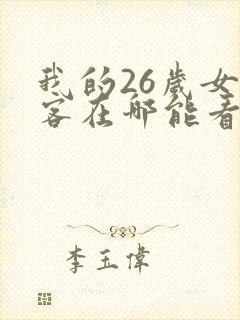 我的26歲女
客在哪能看
李玉偉